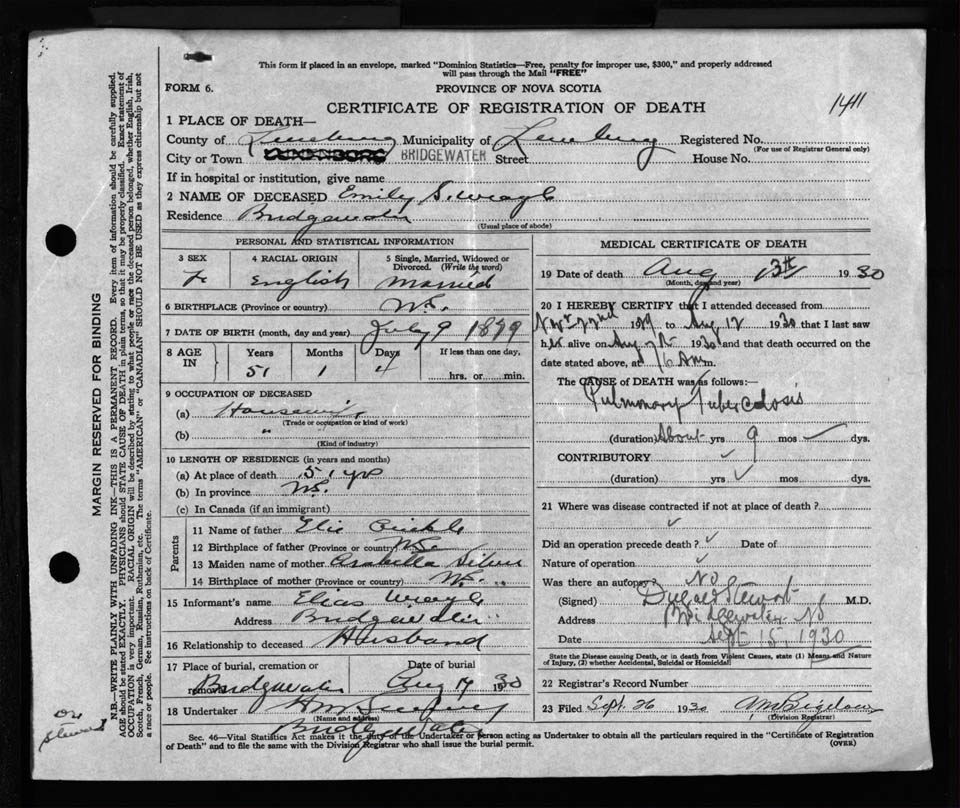 This form if placed in an envelope, marked "Dominion Statistics—Free, penalty for improper use, $300," and properly addressed
will pass through the Mail "FREE"
FORM 6.
PROVINCE OF NOVA SCOTIA
CERTIFICATE OF REGISTRATION OF DEATH
1411
1 PLACE OF DEATH—
County of Lunenburg Municipality of Lunenburg Registered No.
(For use of Registrar General only)
City or Town BRIDGEWATER Street House No.
If in hospital or institution, give name
2 NAME OF DECEASED Emily S.
Residence Bridgewater
(Usual place of abode)
PERSONAL AND STATISTICAL INFORMATION
3 SEX 4 RACIAL ORIGIN 5 Single, Married, Widowed or
Divorced. (Write the word)
F English Married
6 BIRTHPLACE (Province or country) N.S.
7 DATE OF BIRTH (month, day and year) July 9 1879
8 AGE IN Years Months Days If less than one day,
51 1 4 hrs. or min.
9 OCCUPATION OF DECEASED
(a) Housewife
(Trade or occupation or kind of work)
(b) "
(Kind of industry)
10 LENGTH OF RESIDENCE (in years and months)
(a) At place of death 51 yrs
(b) In province N.S.
(c) In Canada (if an immigrant)
Parents
11 Name of father
12 Birthplace of father (Province or country) N.S.
13 Maiden name of mother Arabella
14 Birthplace of mother (Province or country) N.S. "
15 Informant's name Elias
Address Bridgewater
16 Relationship to deceased Husband
17 Place of burial, cremation or removal Bridgewater Date of burial Aug 1930
18 Undertaker
(Name and address)
Bridgewater
MEDICAL CERTIFICATE OF DEATH
19 Date of death Aug 13th 1930
(Month, day and year)
20 I HEREBY CERTIFY that I attended deceased from
22nd 1929 to Aug 12 1930 that I last saw
her alive on Aug 12 1930 and that death occurred on the
date stated above, at 6 AM m.
The CAUSE OF DEATH was as follows:—
Pulmonary Tuberculosis
(duration) About yrs 9 mos dys.
CONTRIBUTORY
(duration) yrs mos dys.
21 Where was disease contracted if not at place of death?
Did an operation precede death? Date of
Nature of operation
Was there an autopsy? No
(Signed) Dugald Stewart M.D.
Address Bridgewater NS
Date Sept 15, 1930
State the Disease causing Death, or in death from Violent Causes, state (1) Means and Nature
of Injury, (2) whether Accidental, Suicidal or Homicidal
22 Registrar's Record Number
23 Filed Sept. 26 1930
(Division Registrar)
Sec. 46—Vital Statistics Act makes it the duty of the Undertaker or person acting as Undertaker to obtain all the particulars required in the "Certificate of Registration
of Death" and to file the same with the Division Registrar who shall issue the burial permit.
(OVER)
MARGIN RESERVED FOR BINDING
N.B.—WRITE PLAINLY WITH UNFADING INK—THIS IS A PERMANENT RECORD. Every item of information should be carefully supplied.
AGE should be stated EXACTLY. PHYSICIANS should STATE CAUSE OF DEATH in plain terms, so that it may be properly classified. Exact statement of
OCCUPATION is very important. RACIAL ORIGIN will be described by stating to what people or race the deceased person belonged, whether English, Irish,
Scotch, French, German, Russian, Ruthenian, etc. The terms "AMERICAN" or "CANADIAN" SHOULD NOT BE USED as they express citizenship but not
a race or people. See instructions on back of Certificate.